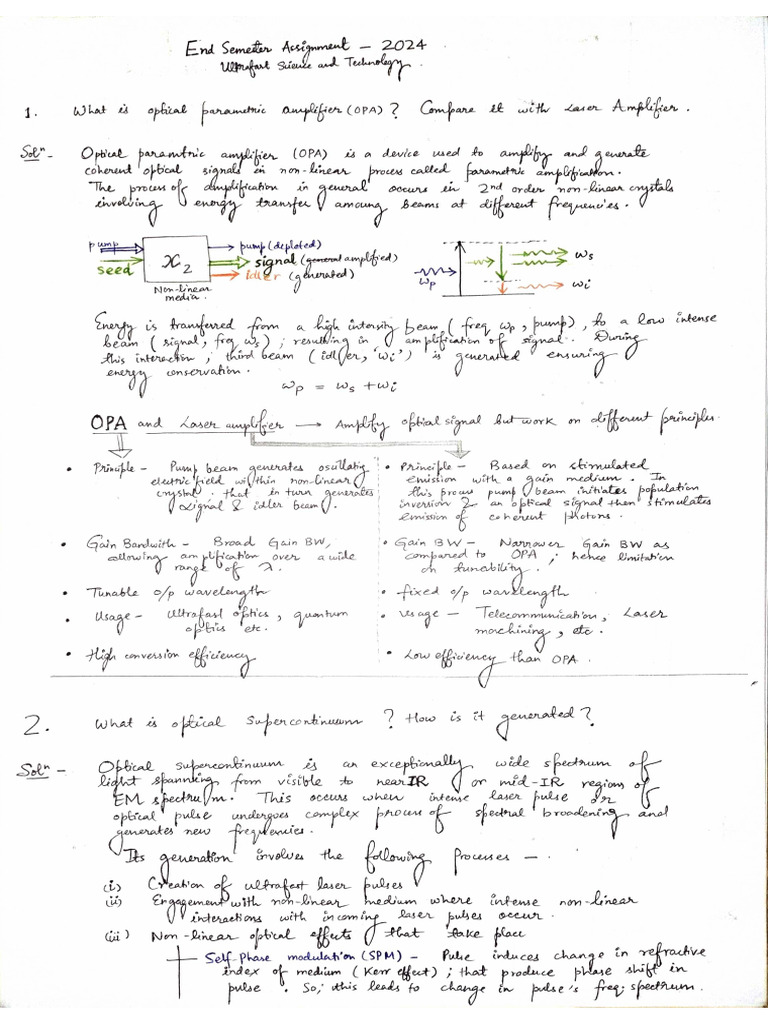 End Semester Assignment - 2024
Ultrafast Science and Technology.
1. What is optical parametric amplifier (OPA)? Compare it with Laser Amplifier.
Solⁿ - Optical parametric amplifier (OPA) is a device used to amplify and generate
coherent optical signals in non-linear process called parametric amplification.
The process of amplification in general occurs in 2nd order non-linear crystals
involving energy transfer amoung beams at different frequencies.
pump
seed
χ₂
Non-linear
media.
pump (depleted)
signal (amplified)
idler (generated)
ωp
ωs
ωi
Energy is transferred from a high intensity beam (freq ωp, pump), to a low intense
beam (signal, freq ωs); resulting in amplification of signal. During
this interaction, third beam (idler, 'ωi') is generated ensuring
energy conservation.
ωp = ωs + ωi
OPA and Laser amplifier → Amplify optical signal but work on different principles.
• Principle - Pump beam generates oscillating
electric field within non-linear
crystal. that in turn generates
signal & idler beam.
• Gain Bandwith - Broad Gain BW,
allowing amplification over a wide
range of λ.
• Tunable o/p wavelength
• Usage - Ultrafast optics, quantum
optics etc.
• High conversion efficiency
• Principle - Based on stimulated
emission with a gain medium. In
this process pump beam initiates population
inversion & an optical signal then stimulates
emission of coherent photons.
• Gain BW - Narrower Gain BW as
compared to OPA; hence limitation
on tunability.
• fixed o/p wavelength
• Usage - Telecommunication, Laser
machining, etc.
• Low efficiency than OPA.
2. What is optical Supercontinuum? How is it generated?
Solⁿ - Optical supercontinuum is an exceptionally wide spectrum of
light spanning from visible to near IR or mid-IR region of
EM spectrum. This occurs when intense laser pulse or
optical pulse undergoes complex process of spectral broadening and
generates new frequencies.
Its generation involves the following processes -
(i) Creation of ultrafast laser pulses
(ii) Engagement with non-linear medium where intense non-linear
interactions with incoming laser pulses occur.
(iii) Non-linear optical effects that take place
Self-Phase modulation (SPM) - Pulse induces change in refractive
index of medium (Kerr effect); that produce phase shift in
pulse. So, this leads to change in pulse's freq. spectrum.